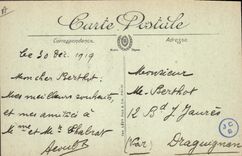 Carte Postale
Correspondance
Adresse
Le 30 Déc. 1919
Mon cher Berthot
Mes meilleurs souhaits
et mes amitiés à
Mme et Mr Chabrat
Monsieur
Mr Berthot
12 Bd J Jaurès
(Var) Draguignan